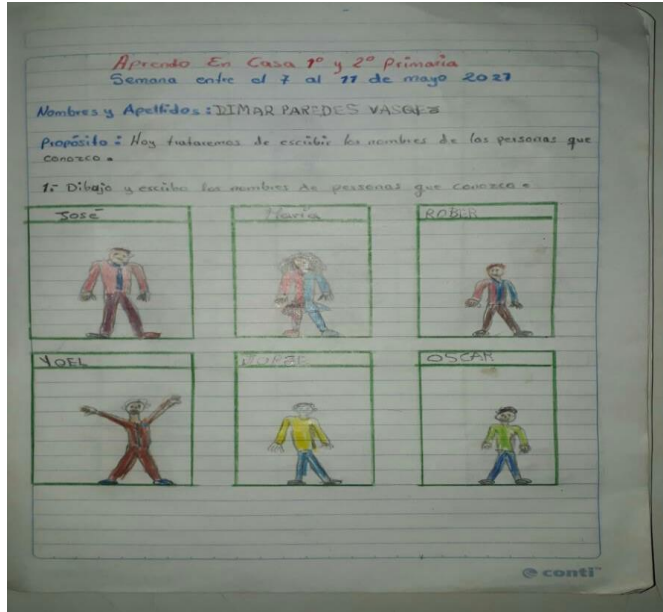 Aprendo En Casa 1° y 2° Primaria
Semana entre el 7 al 11 de mayo 2021
Nombres y Apellidos: DIMAR PAREDES VASQEZ
Propósito: Hoy trataremos de escribir los nombres de las personas que
conozco.
1.- Dibajo y escribo los nombres de personas que conozco.
José María ROBER
YOEL JORGE OSCAR
conti